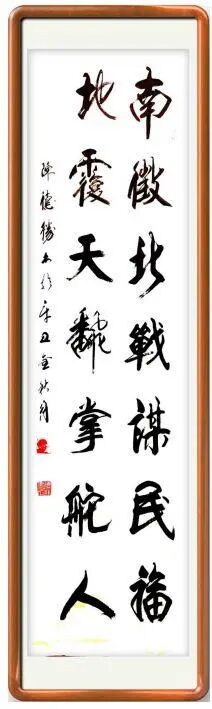 南徵北戰謀民福
地覆天翻掌舵人
陈德勝书於辛丑金秋月